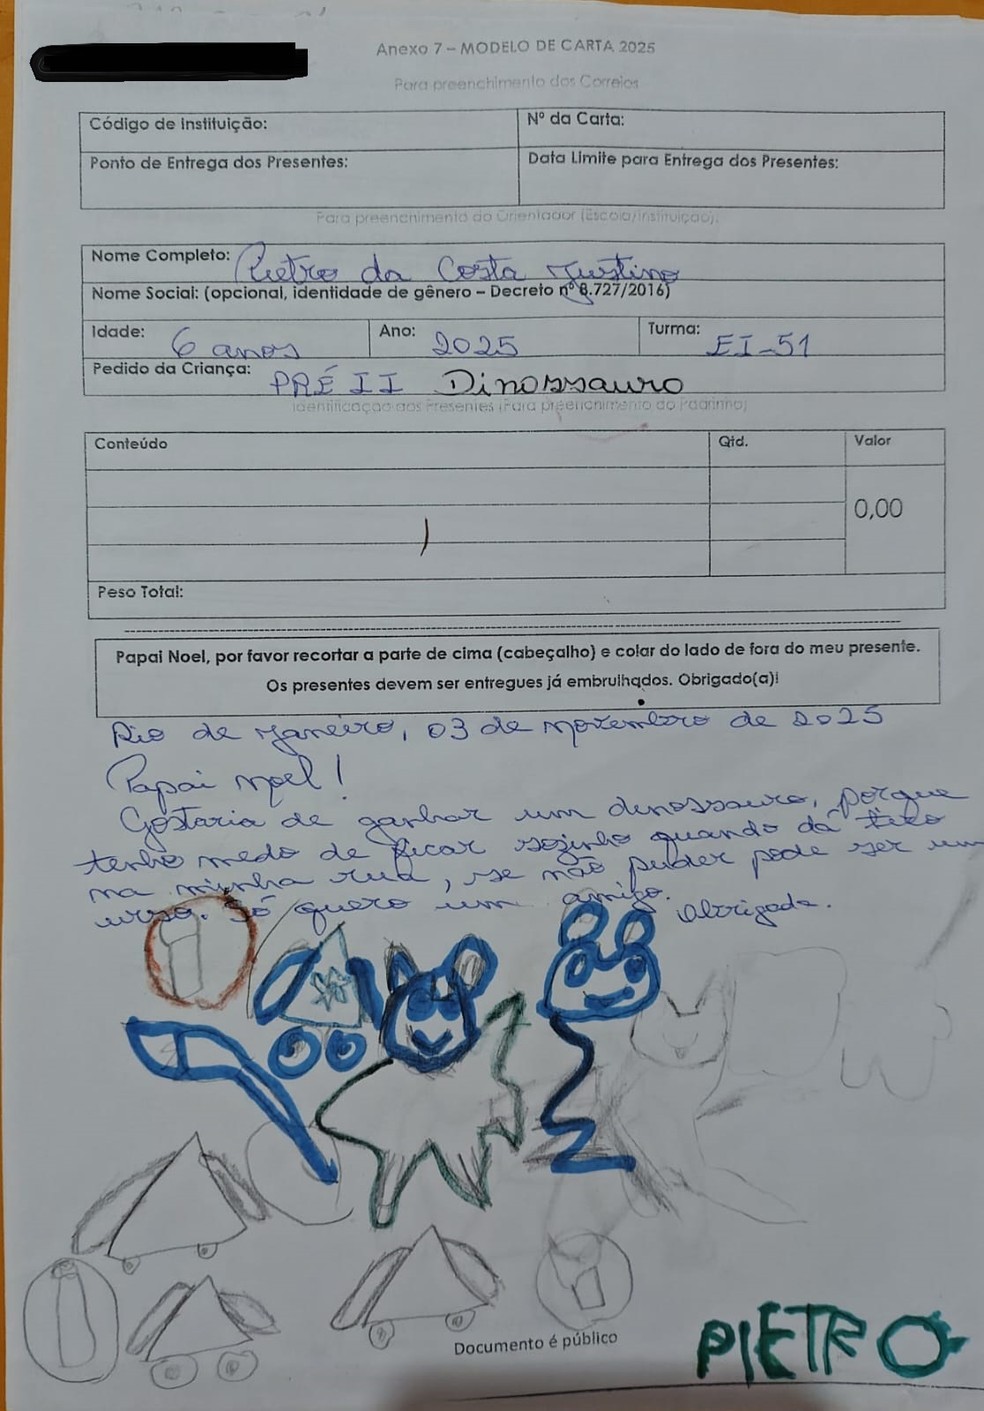 Anexo 7 – MODELO DE CARTA 2025
Para preenchimento dos Correios
Código de Instituição:
Nº da Carta:
Ponto de Entrega dos Presentes:
Data Limite para Entrega dos Presentes:
Para preenchimento do Orientador (Escola/Instituição).
Nome Completo: Pietro da Costa Justino
Nome Social: (opcional, identidade de gênero – Decreto nº 8.727/2016)
Idade: 6 anos
Ano: 2025
Turma: EI-51
Pedido da Criança: PRÉ II Dinossauro
Identificação dos Presentes (Para preenchimento do Padrinho)
Conteúdo
Qtd.
Valor
0,00
Peso Total:
Papai Noel, por favor recortar a parte de cima (cabeçalho) e colar do lado de fora do meu presente.
Os presentes devem ser entregues já embrulhados. Obrigado(a)!
Rio de Janeiro, 03 de novembro de 2025
Papai Noel!
Gostaria de ganhar um dinossauro, porque
tenho medo de ficar sozinho quando dá tiro
na minha rua, se não puder pode ser um
urso. Só quero um amigo.
Obrigada.
Documento é público
PIETRO